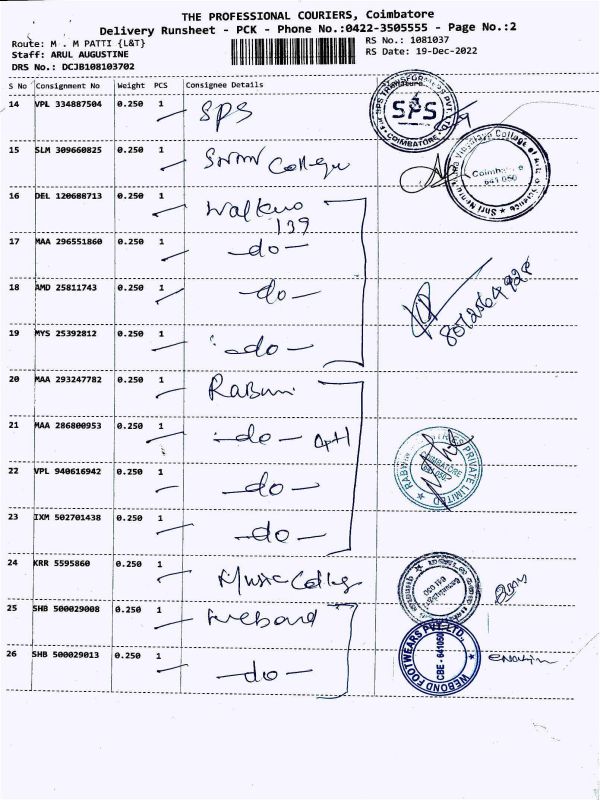 THE PROFESSIONAL COURIERS, Coimbatore
Delivery Runsheet - PCK - Phone No.:0422-3505555 - Page No.:2
Route: M . M PATTI {L&T}
RS No.: 1081037
Staff: ARUL AUGUSTINE
RS Date: 19-Dec-2022
DRS No.: DCJB108103702
S No Consignment No Weight PCS Consignee Details
14 VPL 334887504 0.250 1 SPS
SPS TRANSFORMERS PVT. LTD. SPS COIMBATORE
15 SLM 309660825 0.250 1 SNMV College
Coimbatore 641 050
16 DEL 120688713 0.250 1
139
17 MAA 296551860 0.250 1 -do-
18 AMD 25811743 0.250 1 -do-
19 MYS 25392812 0.250 1 -do-
20 MAA 293247782 0.250 1
21 MAA 286800953 0.250 1 -do-
22 VPL 940616942 0.250 1 -do-
PRIVATE LIMITED COIMBATORE
23 IXM 502701438 0.250 1 -do-
24 KRR 5595860 0.250 1 Music College
25 SHB 500029008 0.250 1 Webond
26 SHB 500029013 0.250 1 -do-
WEBOND FOOTWEARS PVT. LTD. CBE - 641050